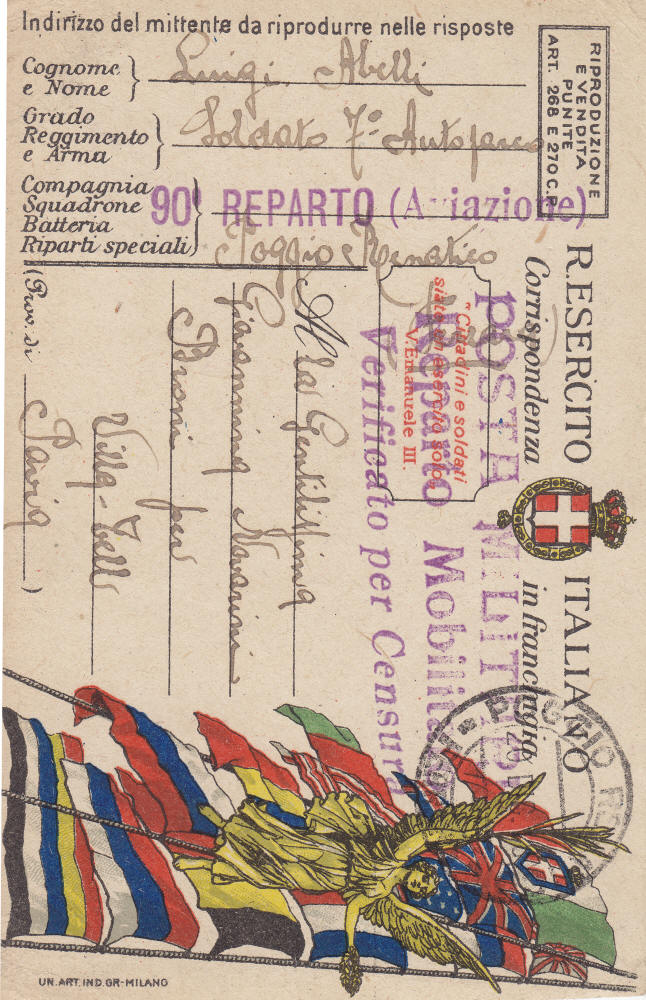 Indirizzo del mittente da riprodurre nelle risposte
Cognome e Nome } Luigi Abelli
Grado Reggimento e Arma } Soldato 7º Autoparco
Compagnia Squadrone Batteria Riparti speciali }
90º REPARTO (Aviazione)
Poggio Renatico
RIPRODUZIONE
E VENDITA
PUNITE
ART. 268 E 270 C.P.
R. ESERCITO ITALIANO
Corrispondenza in franchigia
POSTA MILITARE
Reparto Mobilitato
Verificato per Censura
"Cittadini e soldati
siate un esercito solo"
V. Emanuele III.
Alla Gentilissima
Giovannina
Broni per
Villa-
(Prov. di Pavia)
POGGIO RE
UN. ART. IND. GR-MILANO